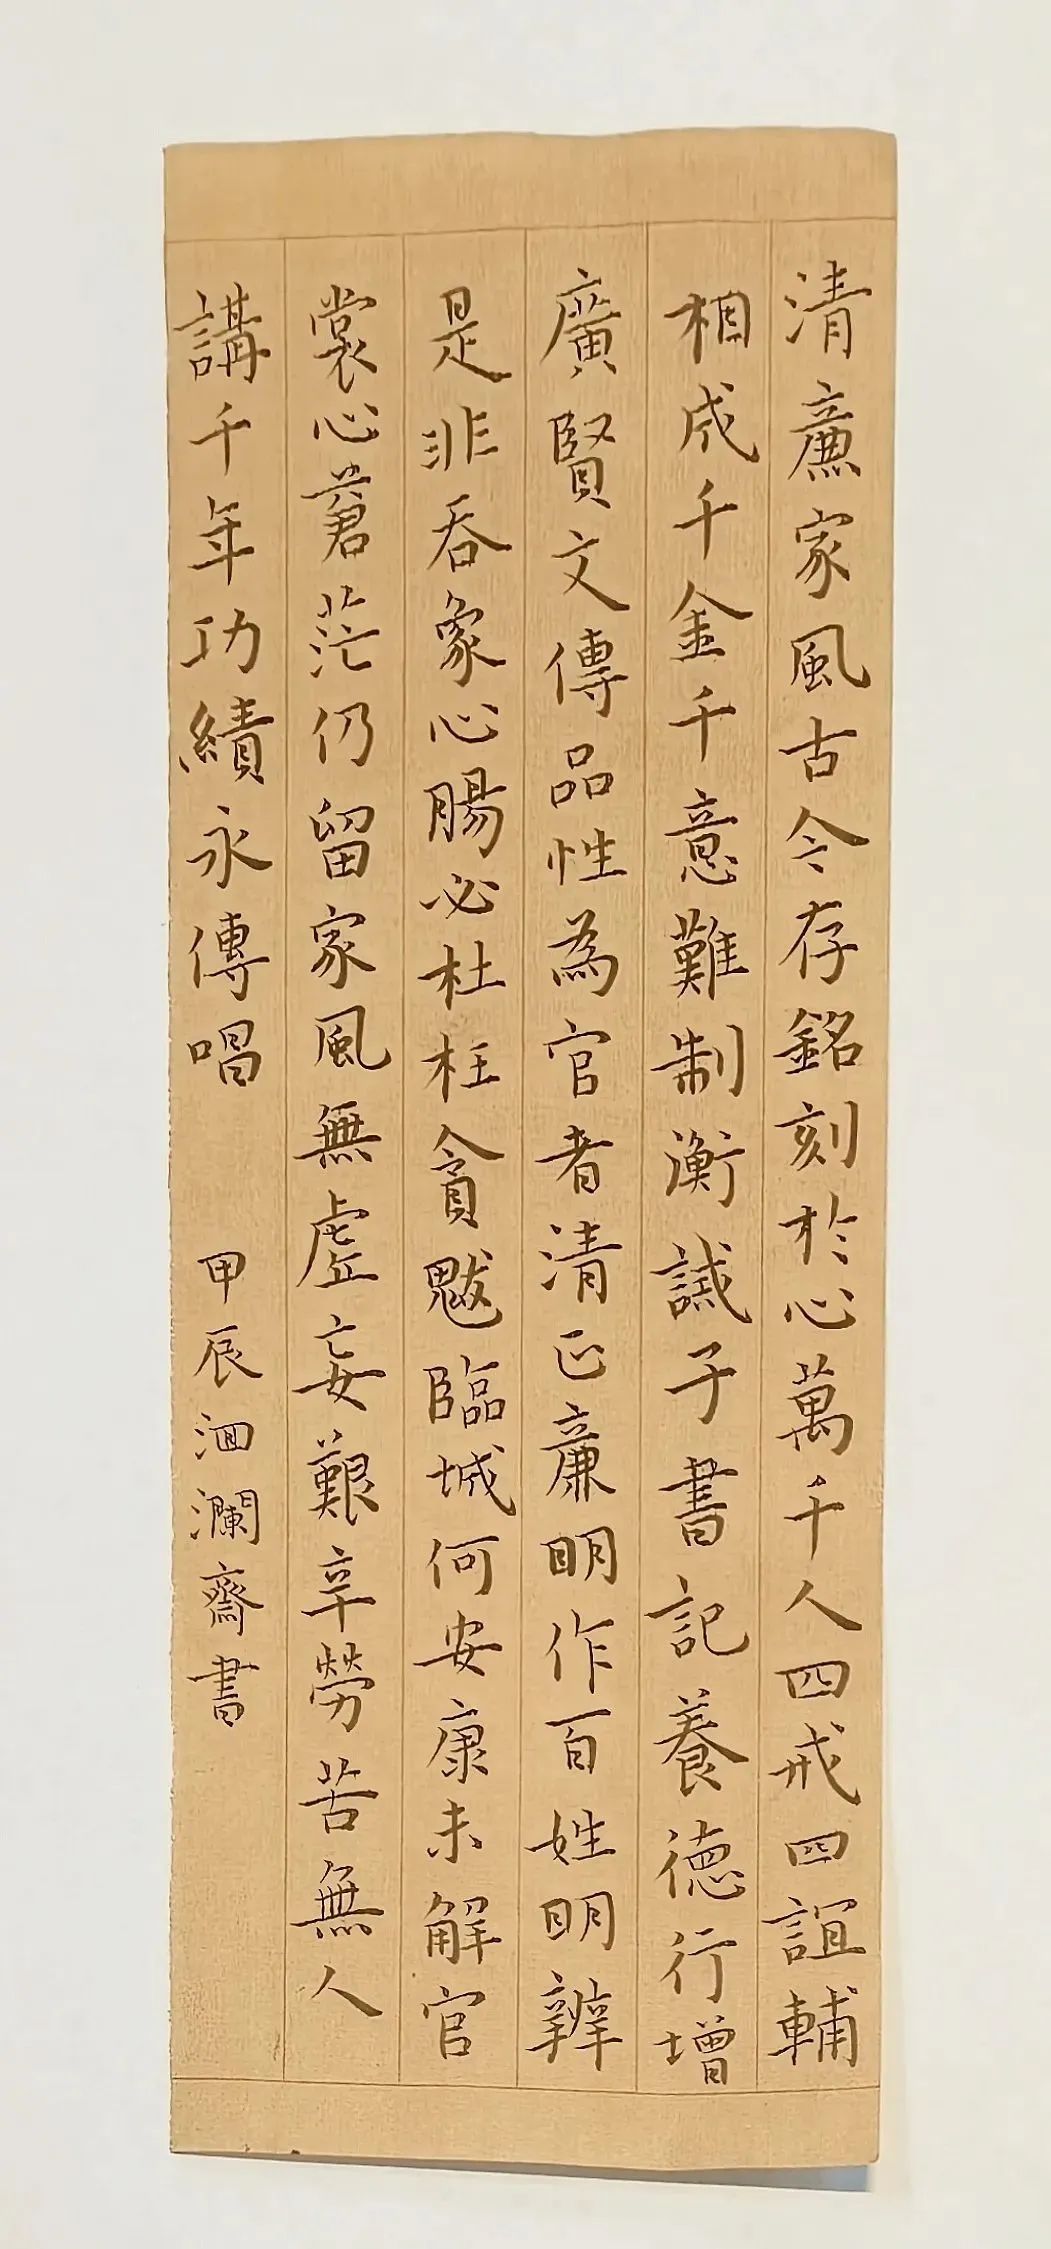 清廉家風古今存銘刻於心萬千人四戒四誼輔
相成千金千意難制衡誡子書記養德行增
廣賢文傳品性為官者清正廉明作百姓明辨
是非吞象心腸必杜枉貪魃臨城何安康未解官
裳心蒼茫仍留家風無虛妄艱辛勞苦無人
講千年功績永傳唱 甲辰洄瀾齋書